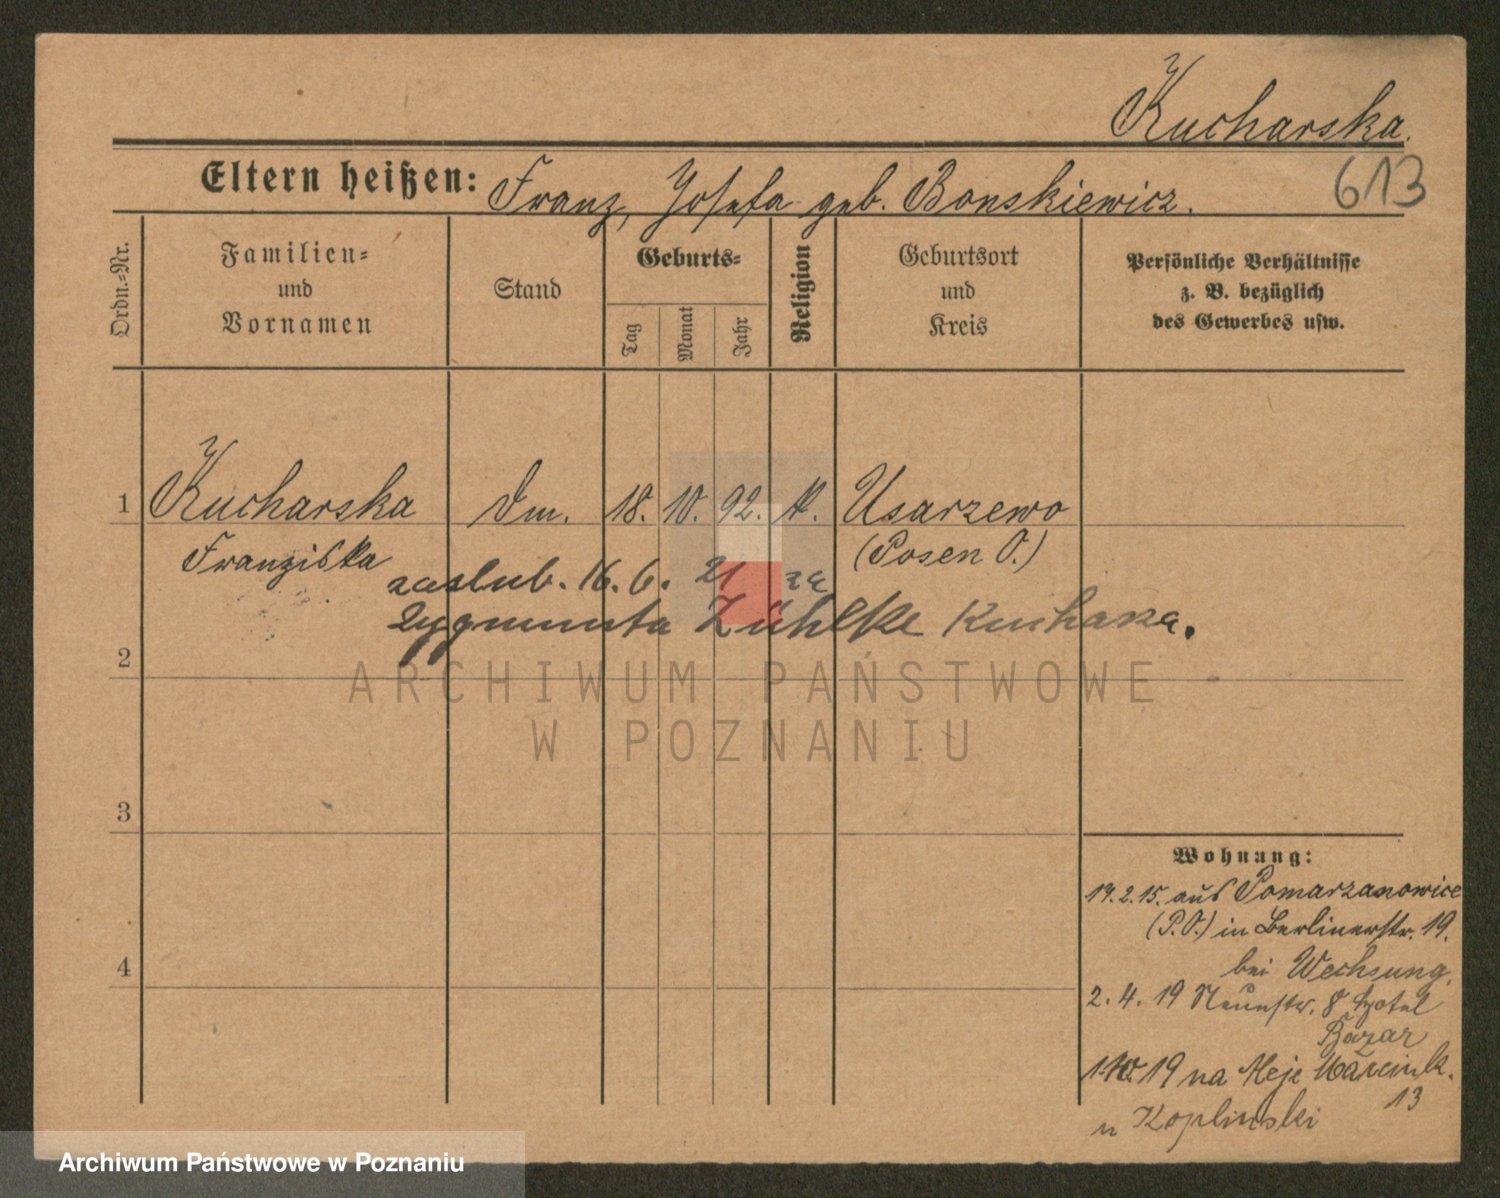 Kucharska.
Eltern heißen: Franz, Josefa geb. Bonskiewicz.
613
Ordn.-Nr.
Familien-
und
Vornamen
Stand
Geburts-
Tag
Monat
Jahr
Religion
Geburtsort
und
Kreis
Persönliche Verhältnisse
z. B. bezüglich
des Gewerbes usw.
1 Kucharska Dm. 18. 10. 92. K. Usarzewo
Franziska (Posen O.)
zaslub. 16. 6. 21 ze
Zygmunta Zühlke Kucharza.
2
ARCHIWUM PAŃSTWOWE
W POZNANIU
3
4
Wohnung:
14.2.15. aus Pomarzanowice
(P.O.) in Berlinerstr. 19.
bei Wechsung.
2. 4. 19 Neuestr. 8 Hotel
Bazar
1.10.19 na Aleje Marcink.
13
u Koplinski
Archiwum Państwowe w Poznaniu